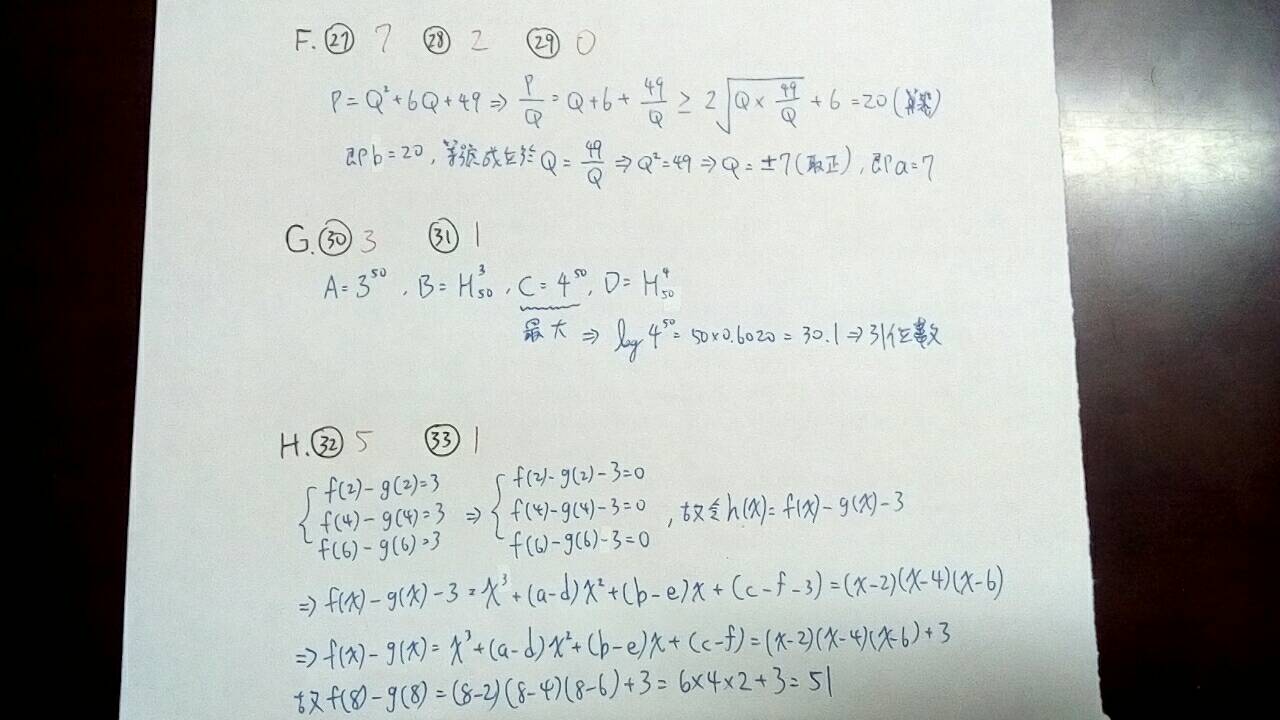 F. ㉗ 7 ㉘ 2 ㉙ 0
P=Q²+6Q+49 ⇒ P/Q = Q+6+49/Q ≥ 2√(Q×49/Q) +6 =20 (算幾)
即b=20, 等號成立於 Q=49/Q ⇒ Q²=49 ⇒ Q=±7(取正), 即a=7
G. ㉚ 3 ㉛ 1
A=3⁵⁰, B=H³₅₀, C=4⁵⁰, D=H⁴₅₀
最大 ⇒ log4⁵⁰=50×0.6020=30.1⇒31位數
H. ㉜ 5 ㉝ 1
f(2)-g(2)=3 f(2)-g(2)-3=0
f(4)-g(4)=3 ⇒ f(4)-g(4)-3=0, 故令h(x)=f(x)-g(x)-3
f(6)-g(6)=3 f(6)-g(6)-3=0
⇒f(x)-g(x)-3=x³+(a-d)x²+(b-e)x+(c-f-3)=(x-2)(x-4)(x-6)
⇒f(x)-g(x)=x³+(a-d)x²+(b-e)x+(c-f)=(x-2)(x-4)(x-6)+3
故f(8)-g(8)=(8-2)(8-4)(8-6)+3=6×4×2+3=51